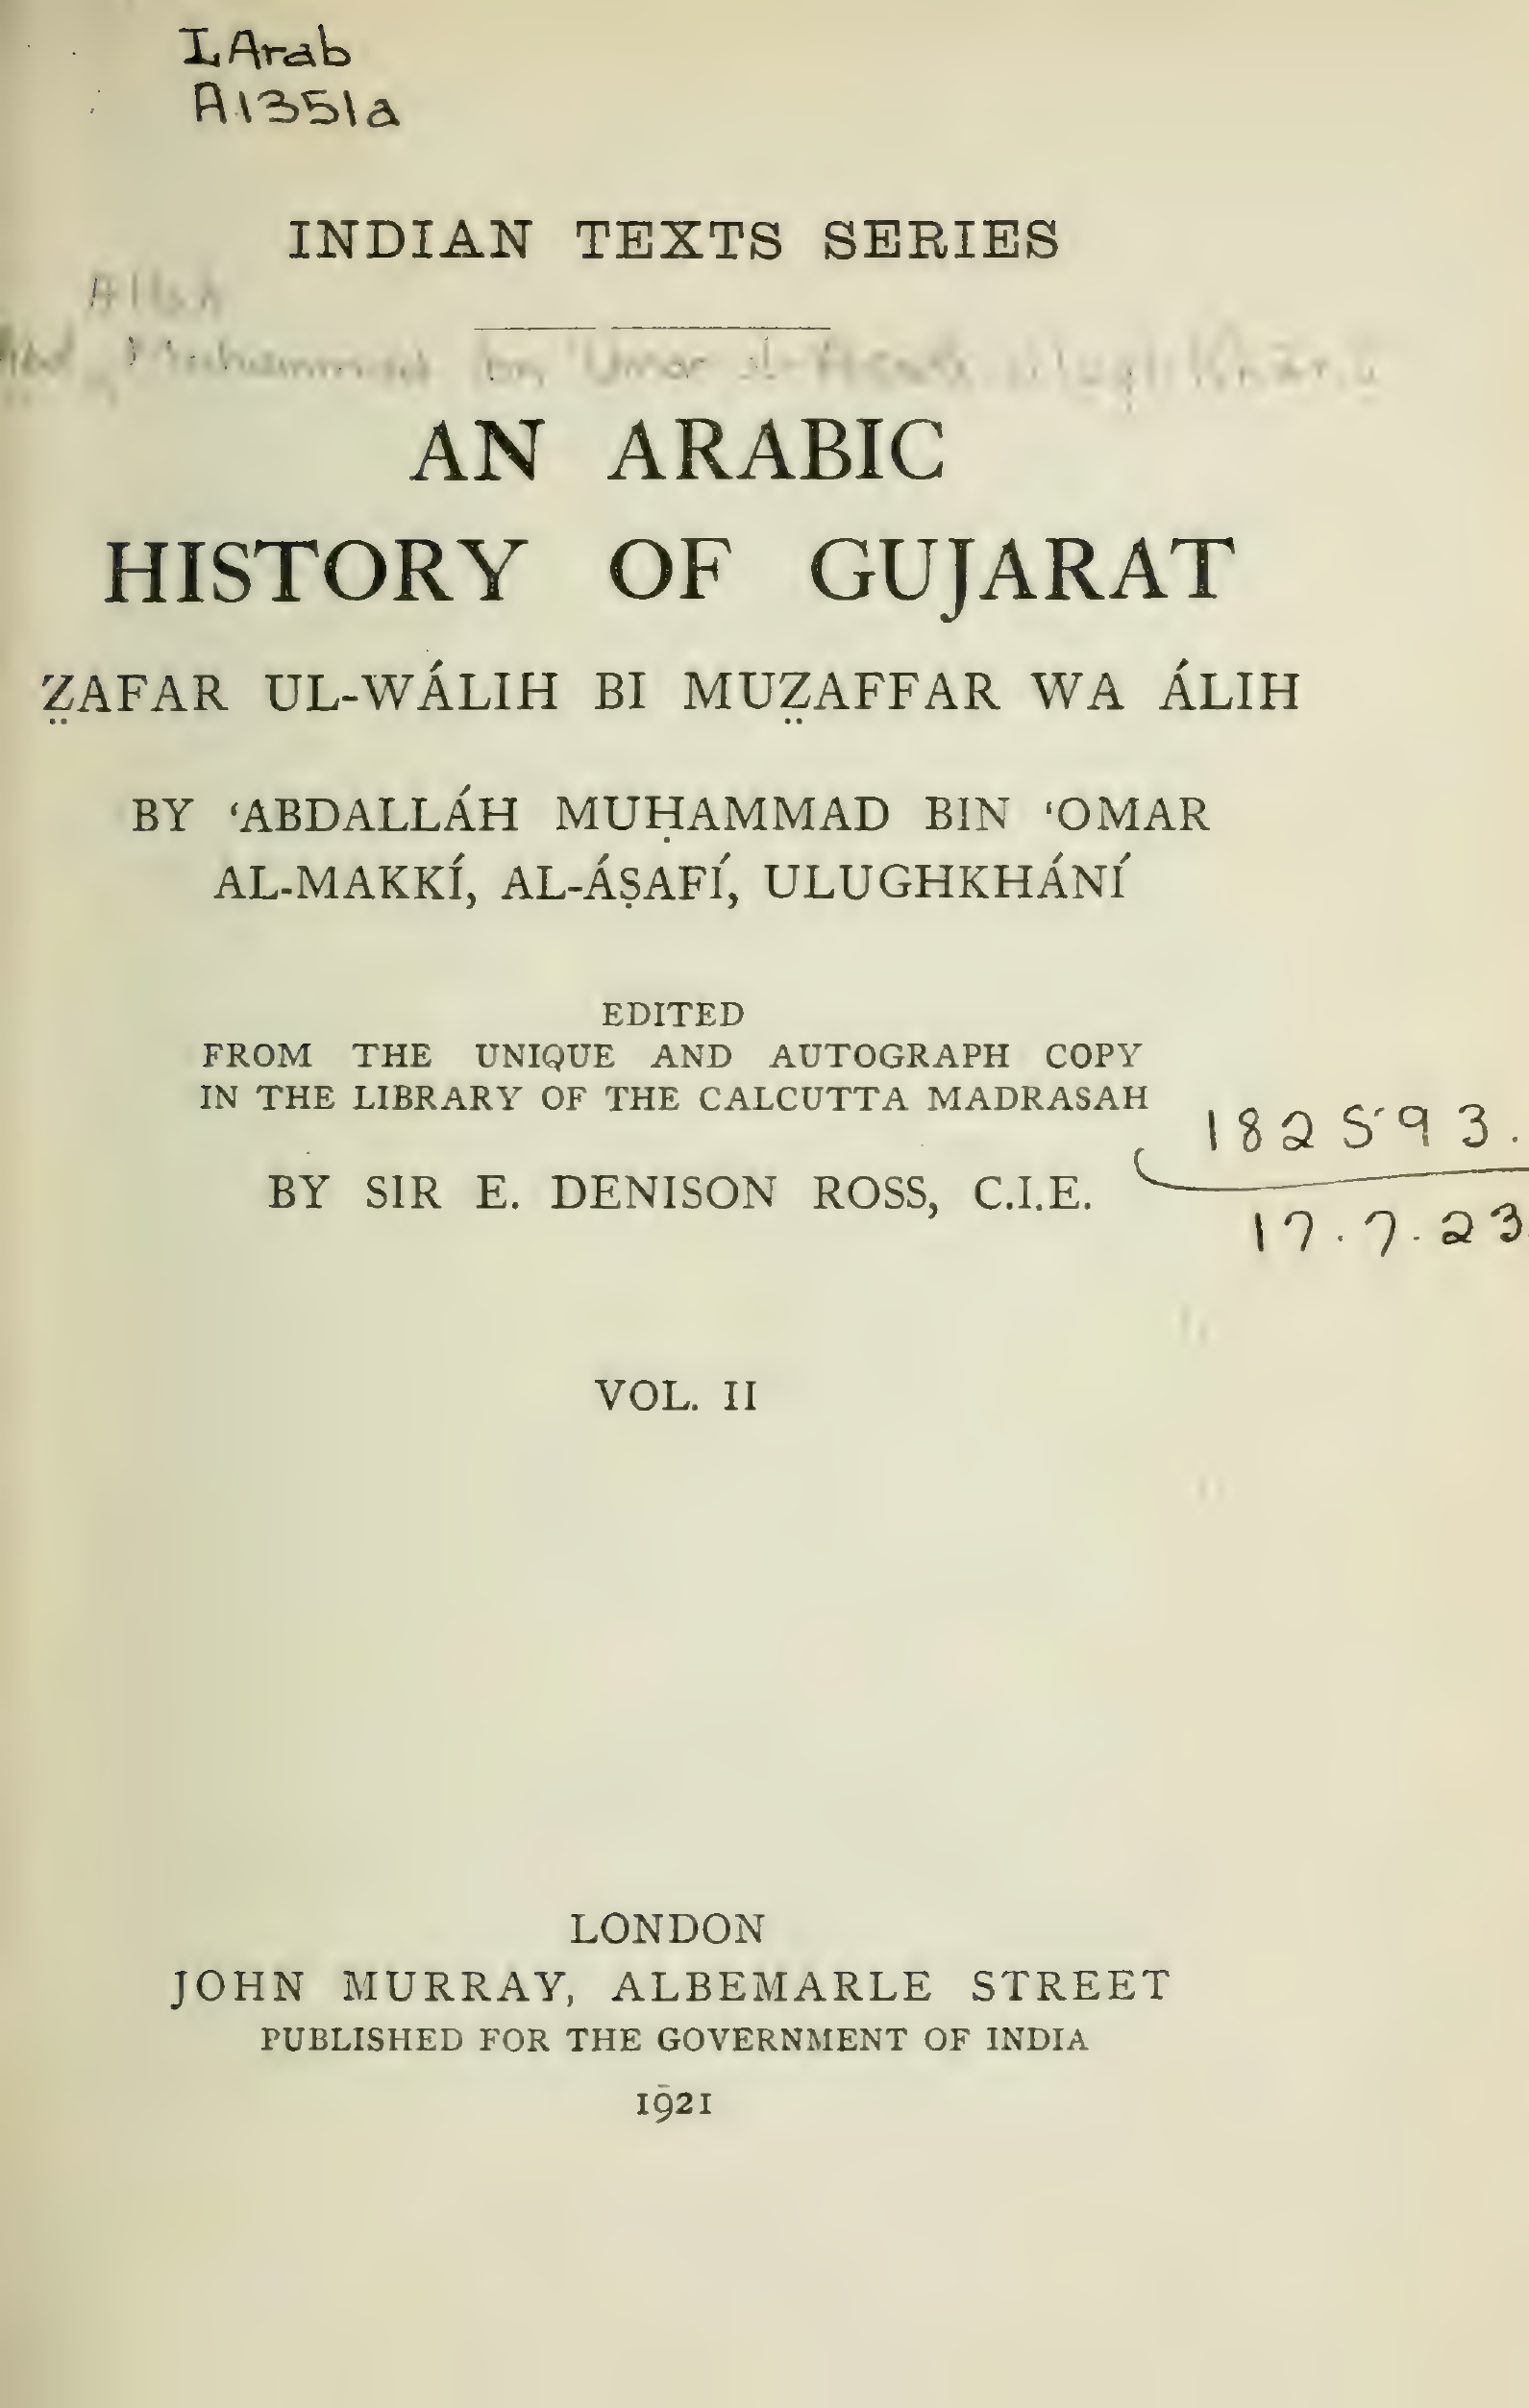 LArab
A1351a
INDIAN TEXTS SERIES
Allah
Muhammad bn Umar al- Ulugh Khani
AN ARABIC
HISTORY OF GUJARAT
Z̤AFAR UL-WÁLIH BI MUZ̤AFFAR WA ÁLIH
BY ‘ABDALLÁH MUḤAMMAD BIN ‘OMAR
AL-MAKKÍ, AL-ÁṢAFÍ, ULUGHKHÁNÍ
EDITED
FROM THE UNIQUE AND AUTOGRAPH COPY
IN THE LIBRARY OF THE CALCUTTA MADRASAH
182593.
BY SIR E. DENISON ROSS, C.I.E.
17.7.23
VOL. II
LONDON
JOHN MURRAY, ALBEMARLE STREET
PUBLISHED FOR THE GOVERNMENT OF INDIA
1921